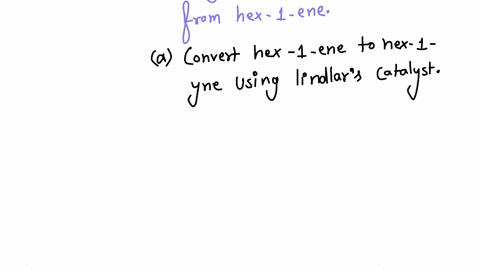 from hex-1-ene.
(a) Convert hex-1-ene to hex-1-
yne using lindlar's catalyst.